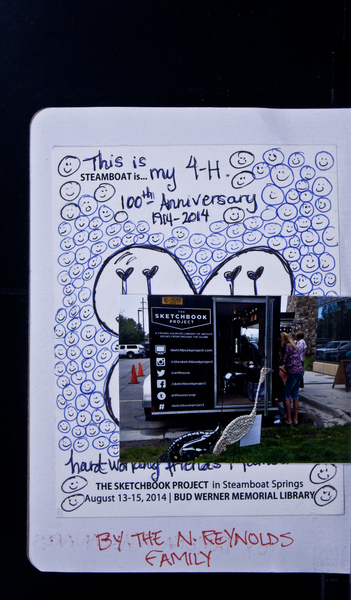 This is
STEAMBOAT is... my 4-H.
100th Anniversary
1914-2014
THE
SKETCHBOOK
PROJECT
sketchbookproject.com
/sketchbookproject
#
hard working friends
THE SKETCHBOOK PROJECT in Steamboat Springs
August 13-15, 2014 | BUD WERNER MEMORIAL LIBRARY
BY THE N. REYNOLDS
FAMILY